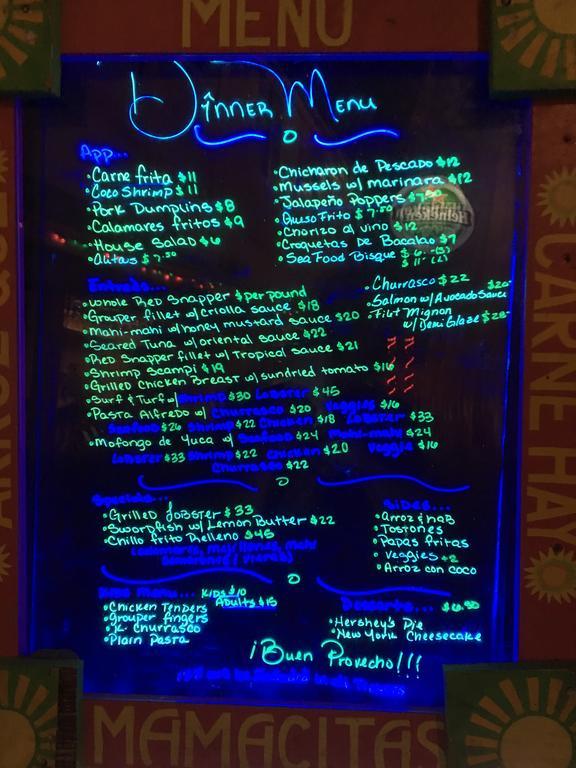 MENU
Dinner Menu
App...
• Carne frita $11
• Coco Shrimp $11
• Pork Dumplins $8
• Calamares fritos $9
• House Salad $6
• Alitas $7.50
• Chicharon de Pescado $12
• Mussels w/ marinara $12
• Jalapeño Poppers $7.50
• Queso Frito $7.50
• Chorizo al vino $12
• Croquetas De Bacalao $9
• Sea Food Bisque $6
Heineken
Entrees...
• Whole Red Snapper $ per pound
• Grouper fillet w/ criolla sauce $18
• Mahi-mahi w/ honey mustard sauce $20
• Seared Tuna w/ oriental sauce $22
• Red Snapper fillet w/ Tropical sauce $21
• Shrimp Scampi $19
• Grilled Chicken Breast w/ sundried tomato $16
• Surf & Turf w/ Shrimp $30 Lobster $45
• Pasta Alfredo w/ Churrasco $20 Veggies $16
Seafood $26 Shrimp $22 Chicken $18 Lobster $33
• Mofongo de Yuca w/ Seafood $24 Mahi-mahi $24
Lobster $33 Shrimp $22 Chicken $20 Veggie $16
Churrasco $22
• Churrasco $22
• Salmon w/ Avocado Sauce $20
• Filet Mignon
w/ Demi Glaze $28
Specials...
• Grilled Lobster $33
• Swordfish w/ Lemon Butter $22
• Chillo frito Relleno $45
Sides...
• Arroz & Hab
• Tostones
• Papas fritas
• Veggies +2
• Arroz con coco
Kids Menu... Kids $10
Adults $15
• Chicken Tenders
• Grouper fingers
• K. Churrasco
• Plain Pasta
Desserts... $6.50
• Hershey's Pie
• New York Cheesecake
¡Buen Provecho!!!
CARNE HAY
MAMACITAS